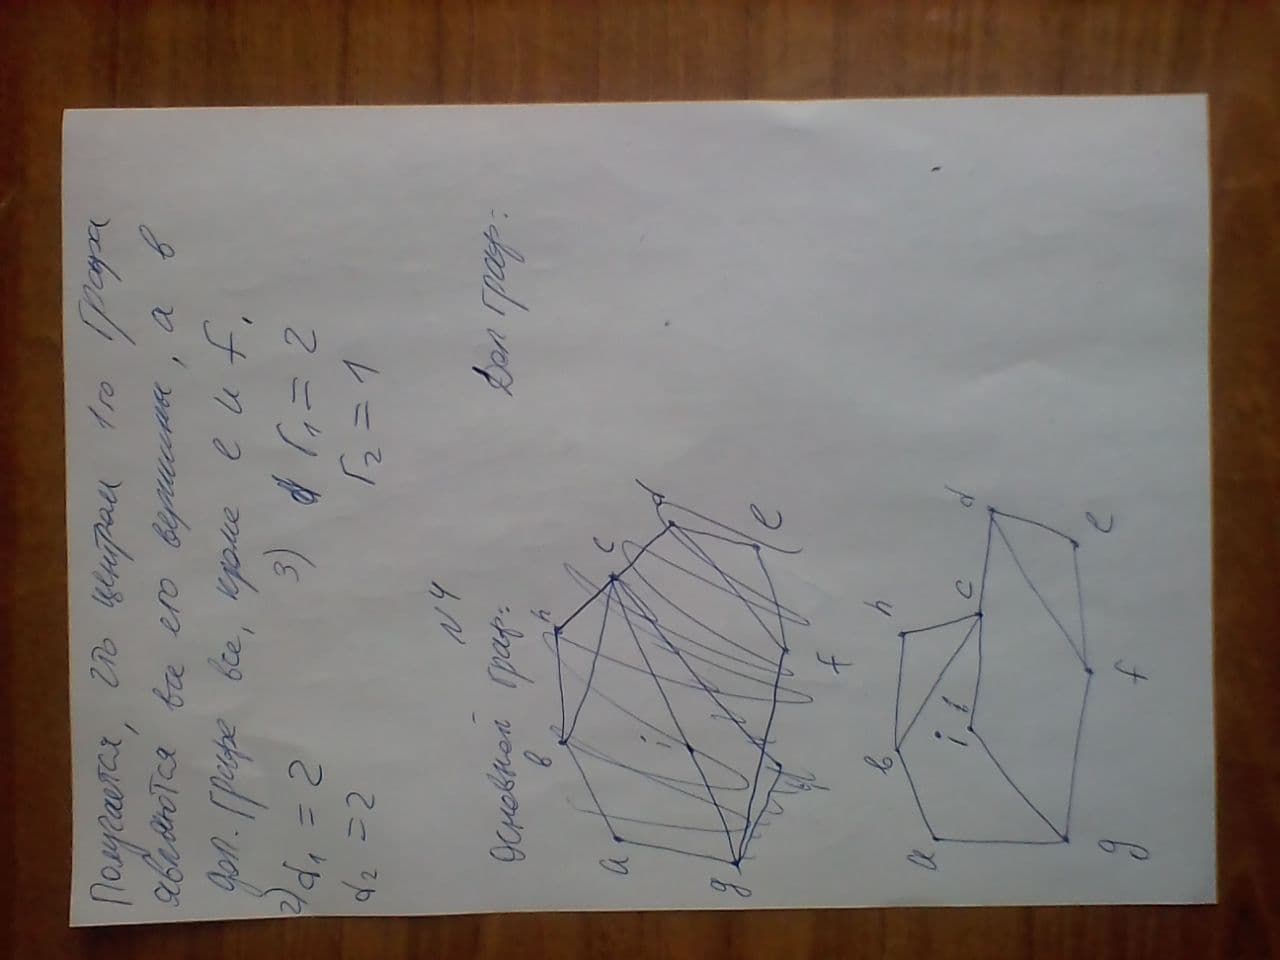 Получается, что центром 1го графа
являются все его вершины, а в
доп. графе все, кроме e и f.
2) d₁ = 2 3) r₁ = 2
d₂ = 2 r₂ = 1
N4
Основной граф: Доп граф:
a в h c d e f g i
a в h c d e f g i